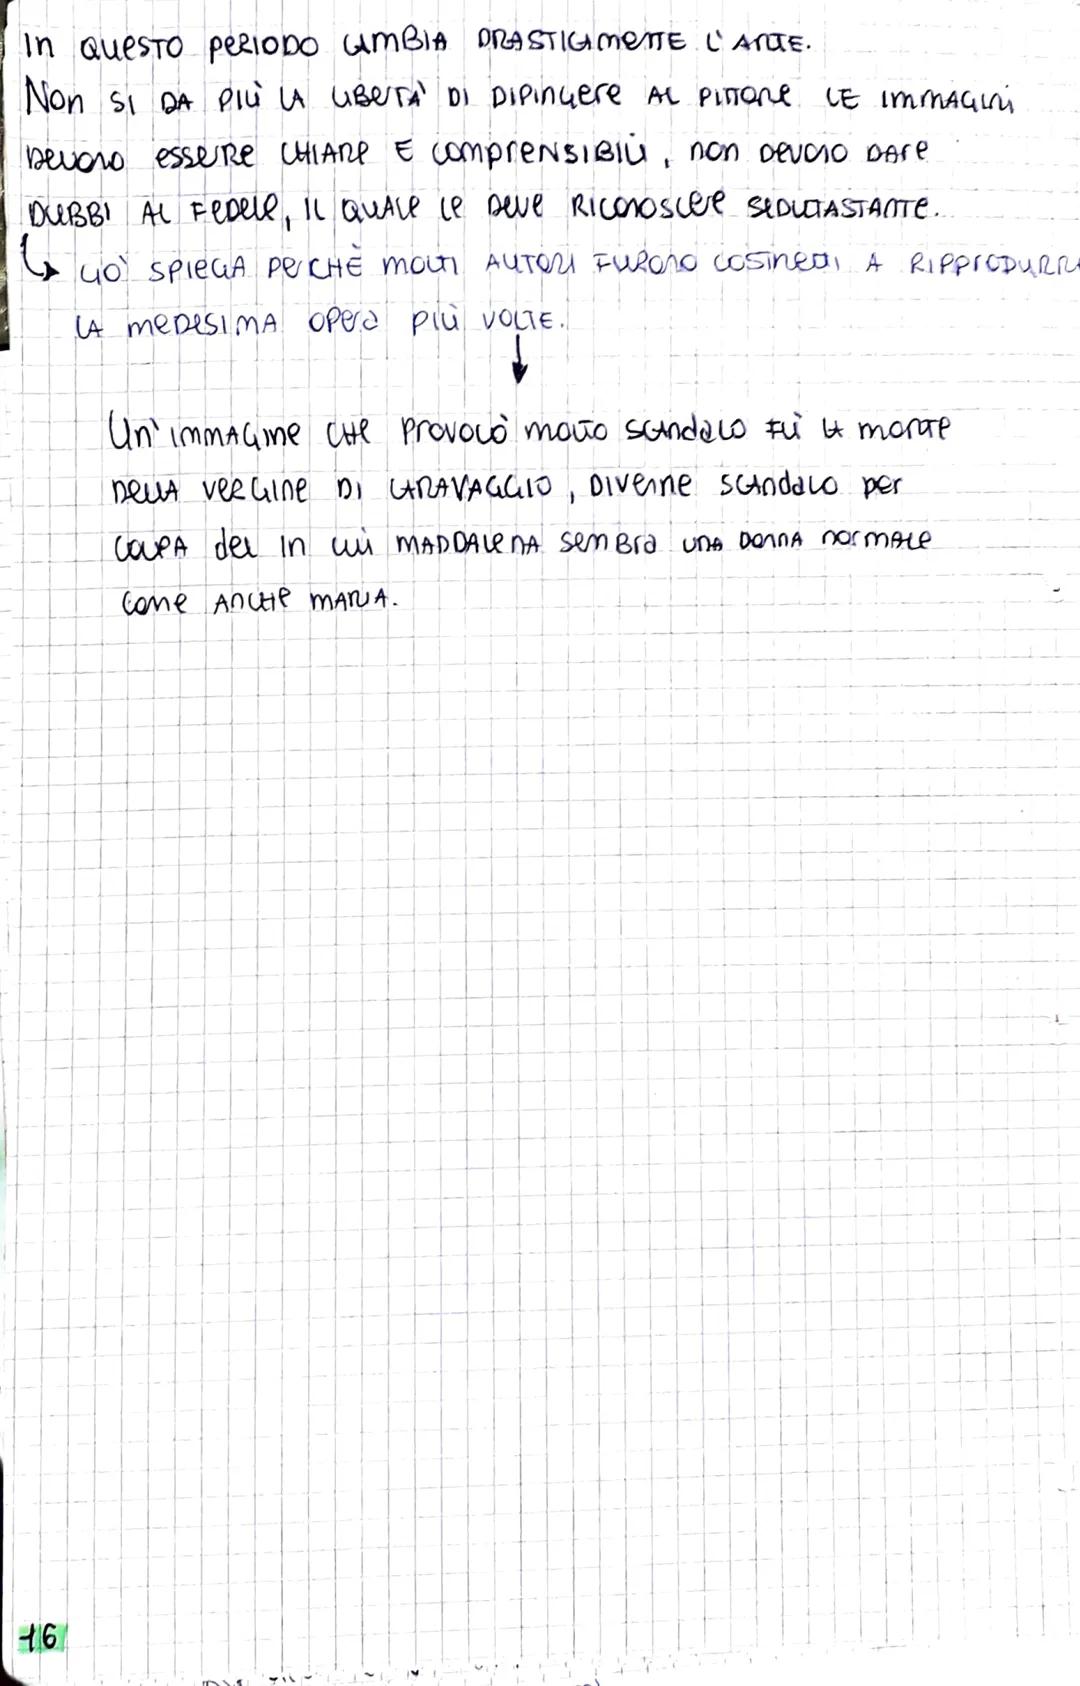 In questo periodo cambia drasticamente l'arte.
Non si da più la libertà di dipingere al pittore le immagini
devono essere chiare e comprensibili, non devono dare
dubbi al fedele, il quale le deve riconoscere sedutastante.
↳ ciò spiega perchè molti autori furono costretti a ripprodurre
la medesima opera più volte.
↓
Un'immagine che provocò molto scandalo fù la morte
della vergine di Caravaggio, divenne scandalo per
colpa del in cui Maddalena sembra una donna normale
come anche Maria.
16